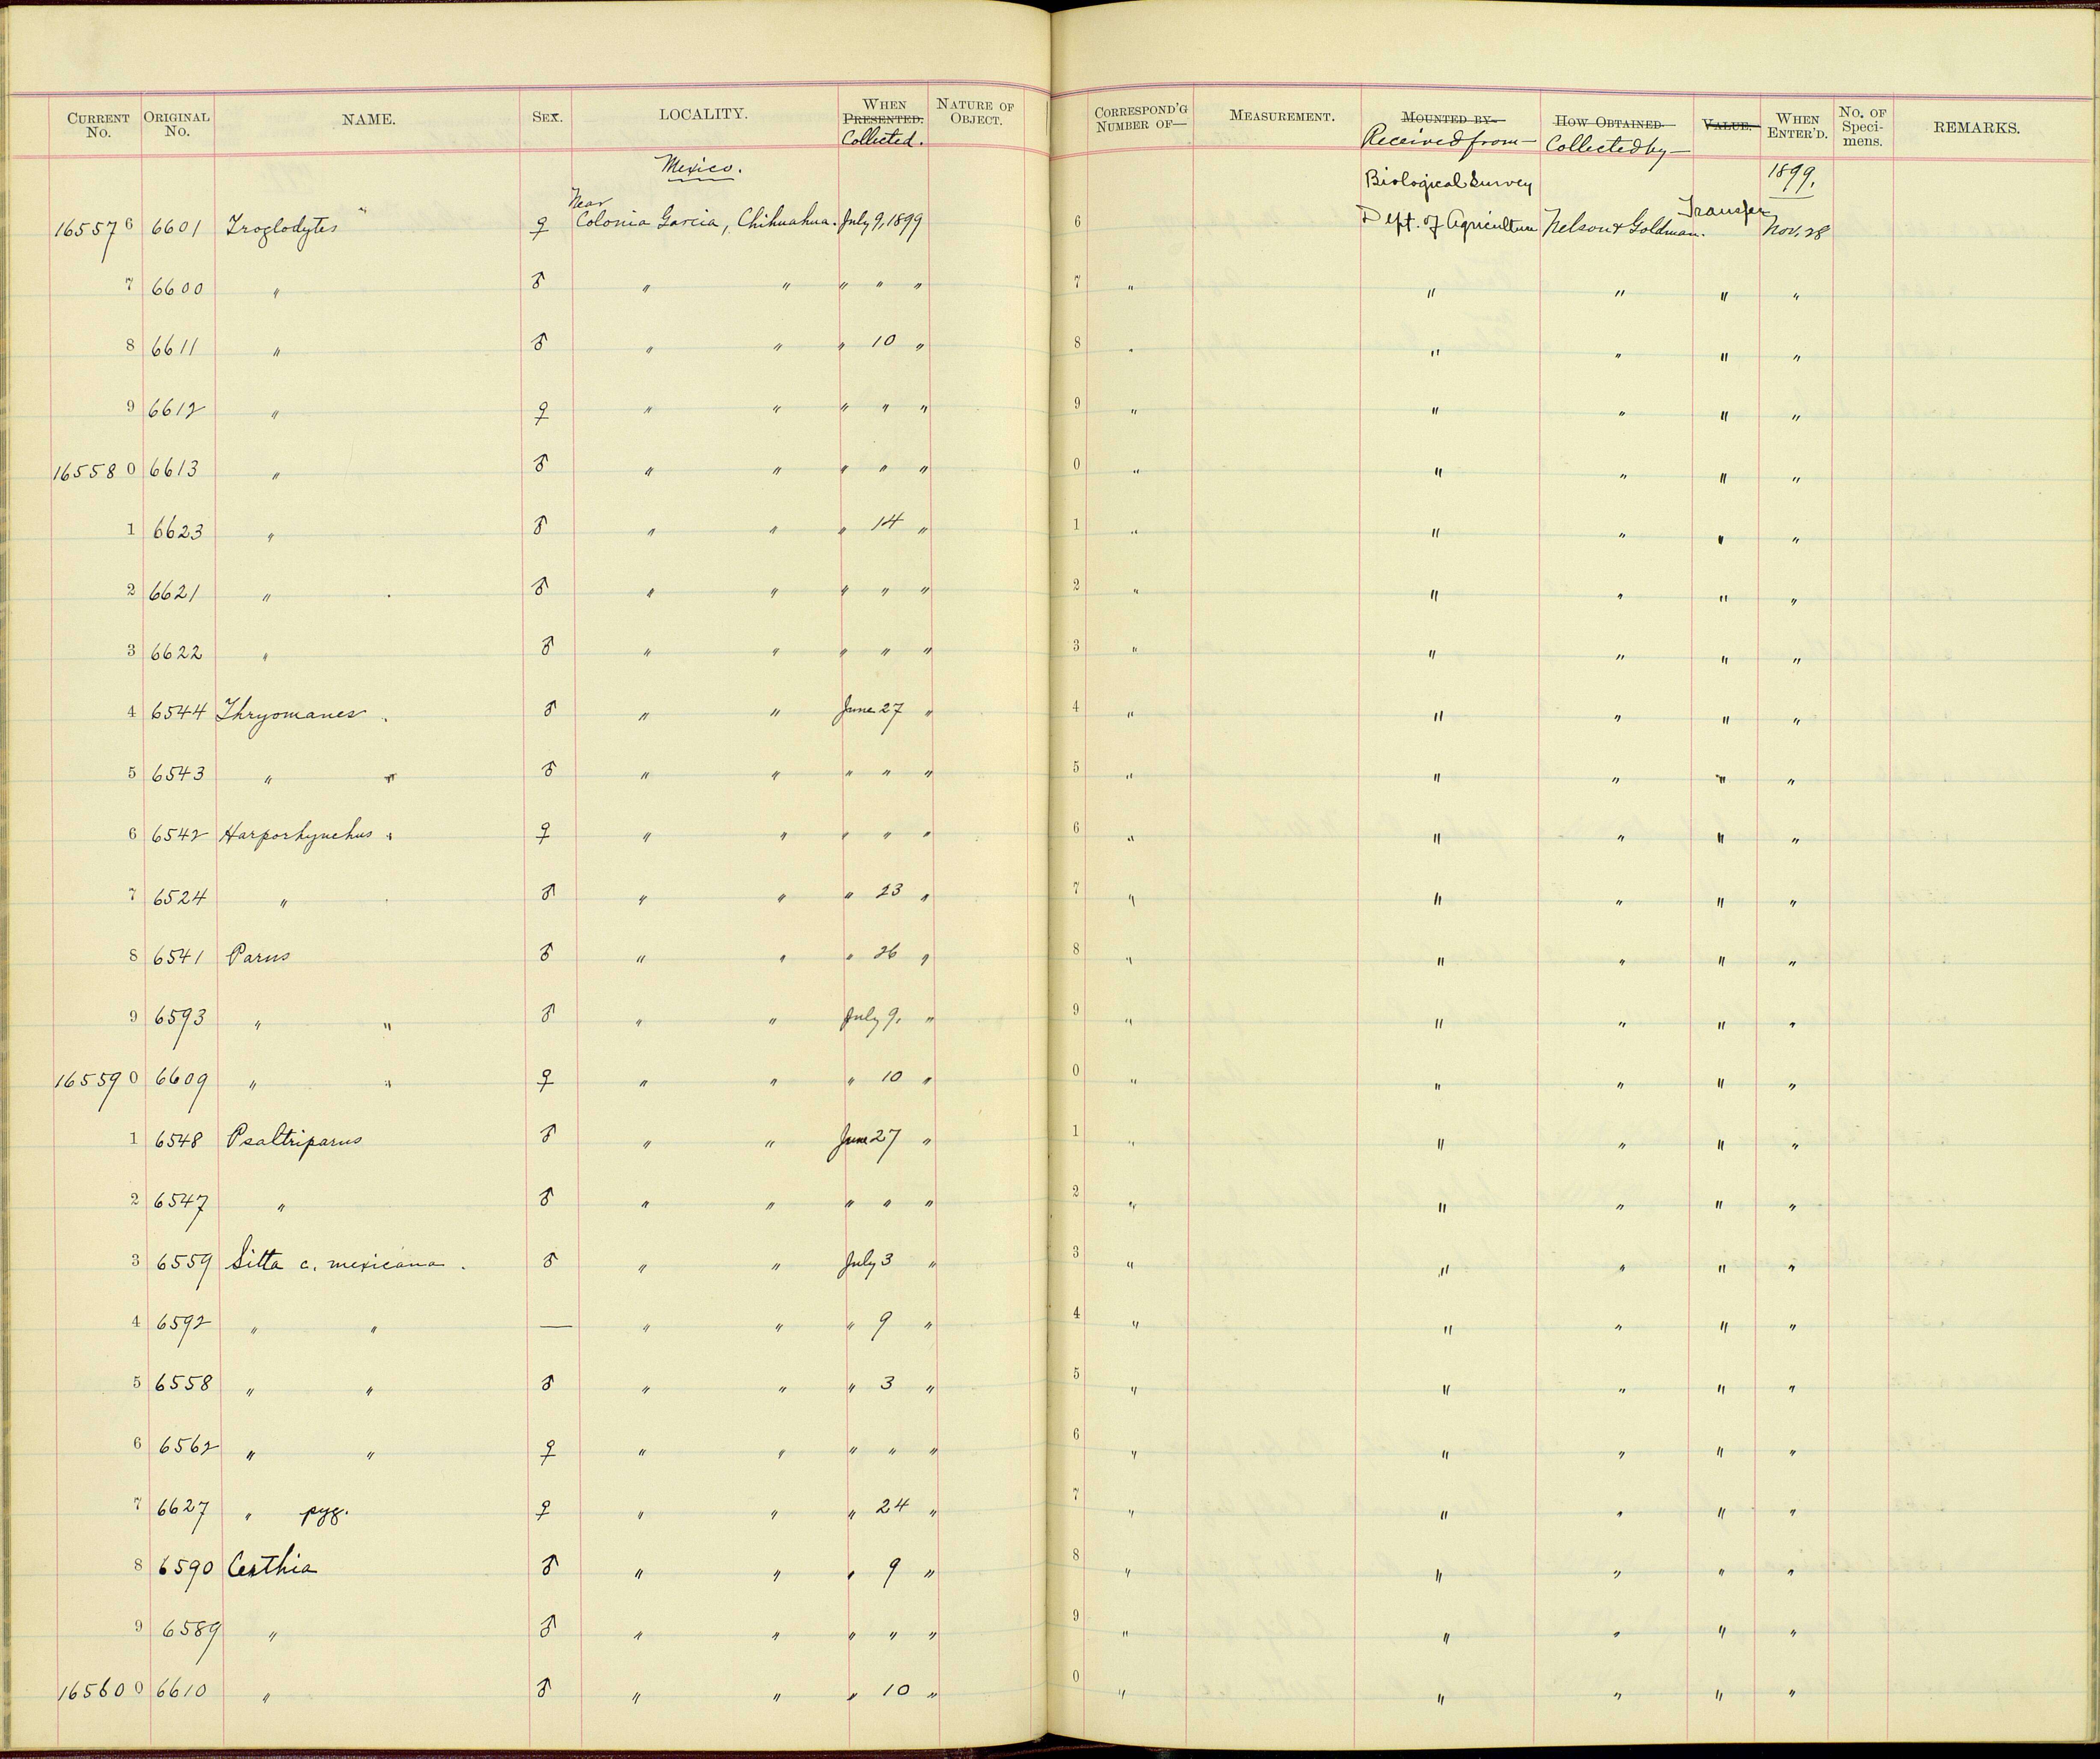 CURRENT No. ORIGINAL No. NAME. SEX. LOCALITY. WHEN PRESENTED. Collected. NATURE OF OBJECT. CORRESPOND'G NUMBER OF— MEASUREMENT. MOUNTED BY— Received from— HOW OBTAINED. Collected by— VALUE. WHEN ENTER'D. No. OF Speci- mens. REMARKS.
Mexico. Biological Survey 1899.
165576 6601 Troglodytes ♀ Near Colonia Garcia, Chihuahua. July 9, 1899 6 Dept. of Agriculture Nelson & Goldman. Transfer Nov. 28
7 6600 " ♂ " " " " " 7 " " " " "
8 6611 " ♂ " " " 10 " 8 " " " " "
9 6612 " ♀ " " " " " 9 " " " " "
165580 6613 " ♂ " " " " " 0 " " " " "
1 6623 " ♂ " " " 14 " 1 " " " " "
2 6621 " ♂ " " " " " 2 " " " " "
3 6622 " ♂ " " " " " 3 " " " " "
4 6544 Thryomanes ♂ " " June 27 " 4 " " " " "
5 6543 " " ♂ " " " " " 5 " " " " "
6 6542 Harporhynchus " ♀ " " " " " 6 " " " " "
7 6524 " ♂ " " " 23 " 7 " " " " "
8 6541 Parus ♂ " " " 26 " 8 " " " " "
9 6593 " " ♂ " " July 9. " 9 " " " " "
165590 6609 " " ♀ " " " 10 " 0 " " " " "
1 6548 Psaltriparus ♂ " " June 27 " 1 " " " " "
2 6547 " ♂ " " " " " 2 " " " " "
3 6559 Sitta c. mexicana. ♂ " " July 3 " 3 " " " " "
4 6592 " " — " " " 9 " 4 " " " " "
5 6558 " " ♂ " " " 3 " 5 " " " " "
6 6562 " " ♀ " " " " " 6 " " " " "
7 6627 " pyg. ♀ " " " 24 " 7 " " " " "
8 6590 Certhia ♂ " " " 9 " 8 " " " " "
9 6589 " ♂ " " " " " 9 " " " " "
165600 6610 " ♂ " " " 10 " 0 " " " " "